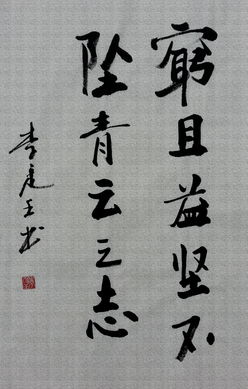 窮且益坚不
坠青云之志
李建王书